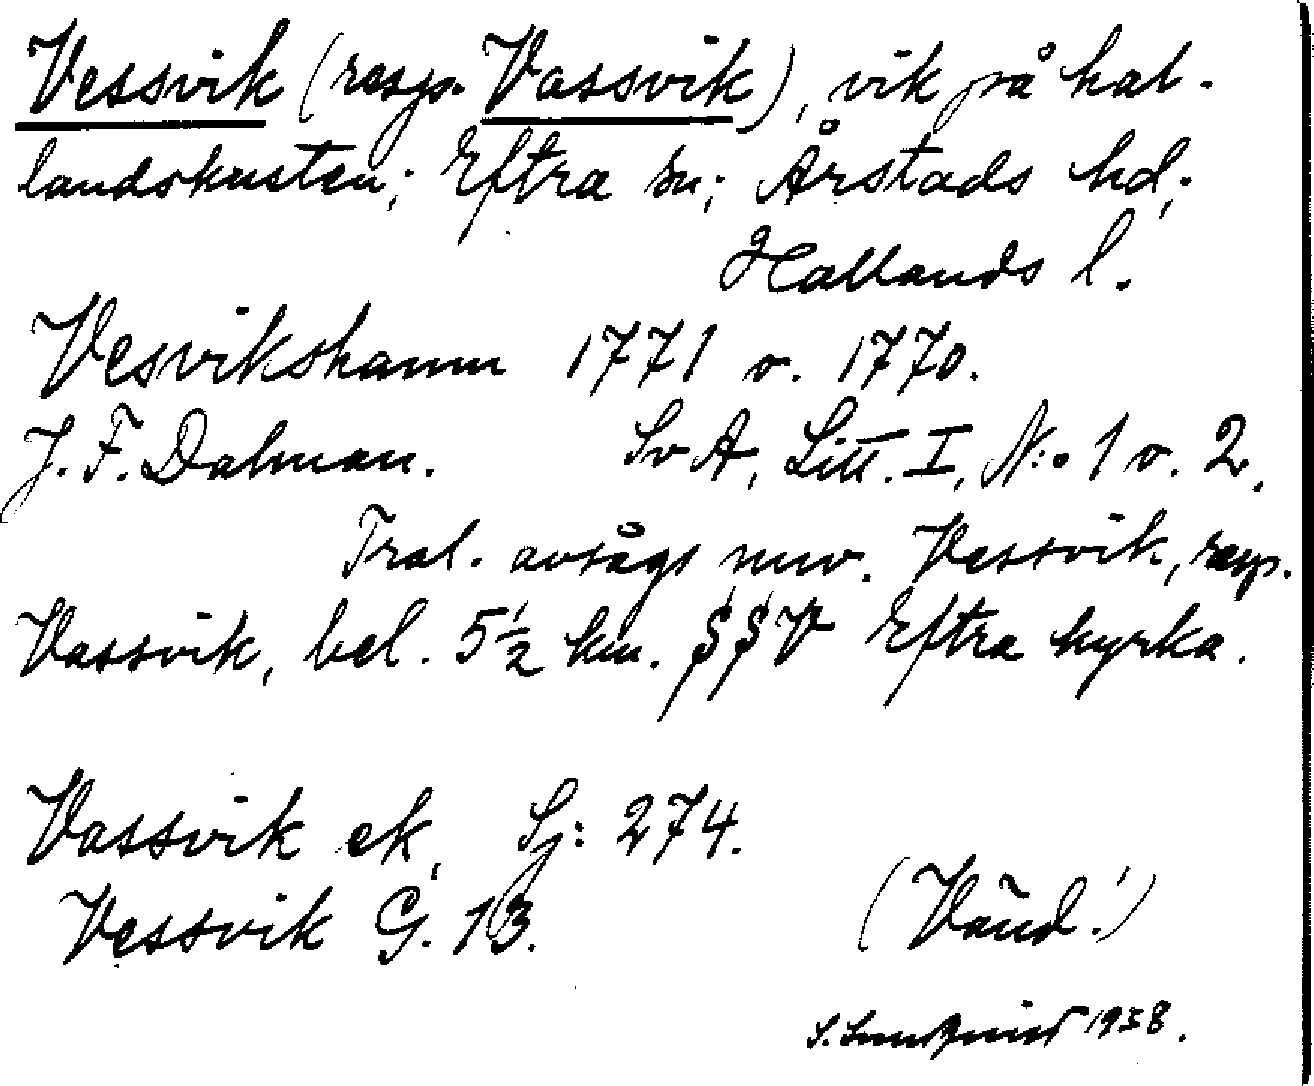 Vessvik (resp. Vassvik), vik på hal-
landskusten; Eftra sn; Årstads hd;
Hallands l.
Vesvikshamn 1771 o. 1770.
J. F. Dalman. SvA, Litt. I, N:o 1 o. 2.
Trol. avsågs nuv. Vessvik, resp.
Vassvik, bel. 5½ km. SSV Eftra kyrka.
Vassvik ek, Sj: 274.
Vessvik G. 13.
(Vänd!)
1938.